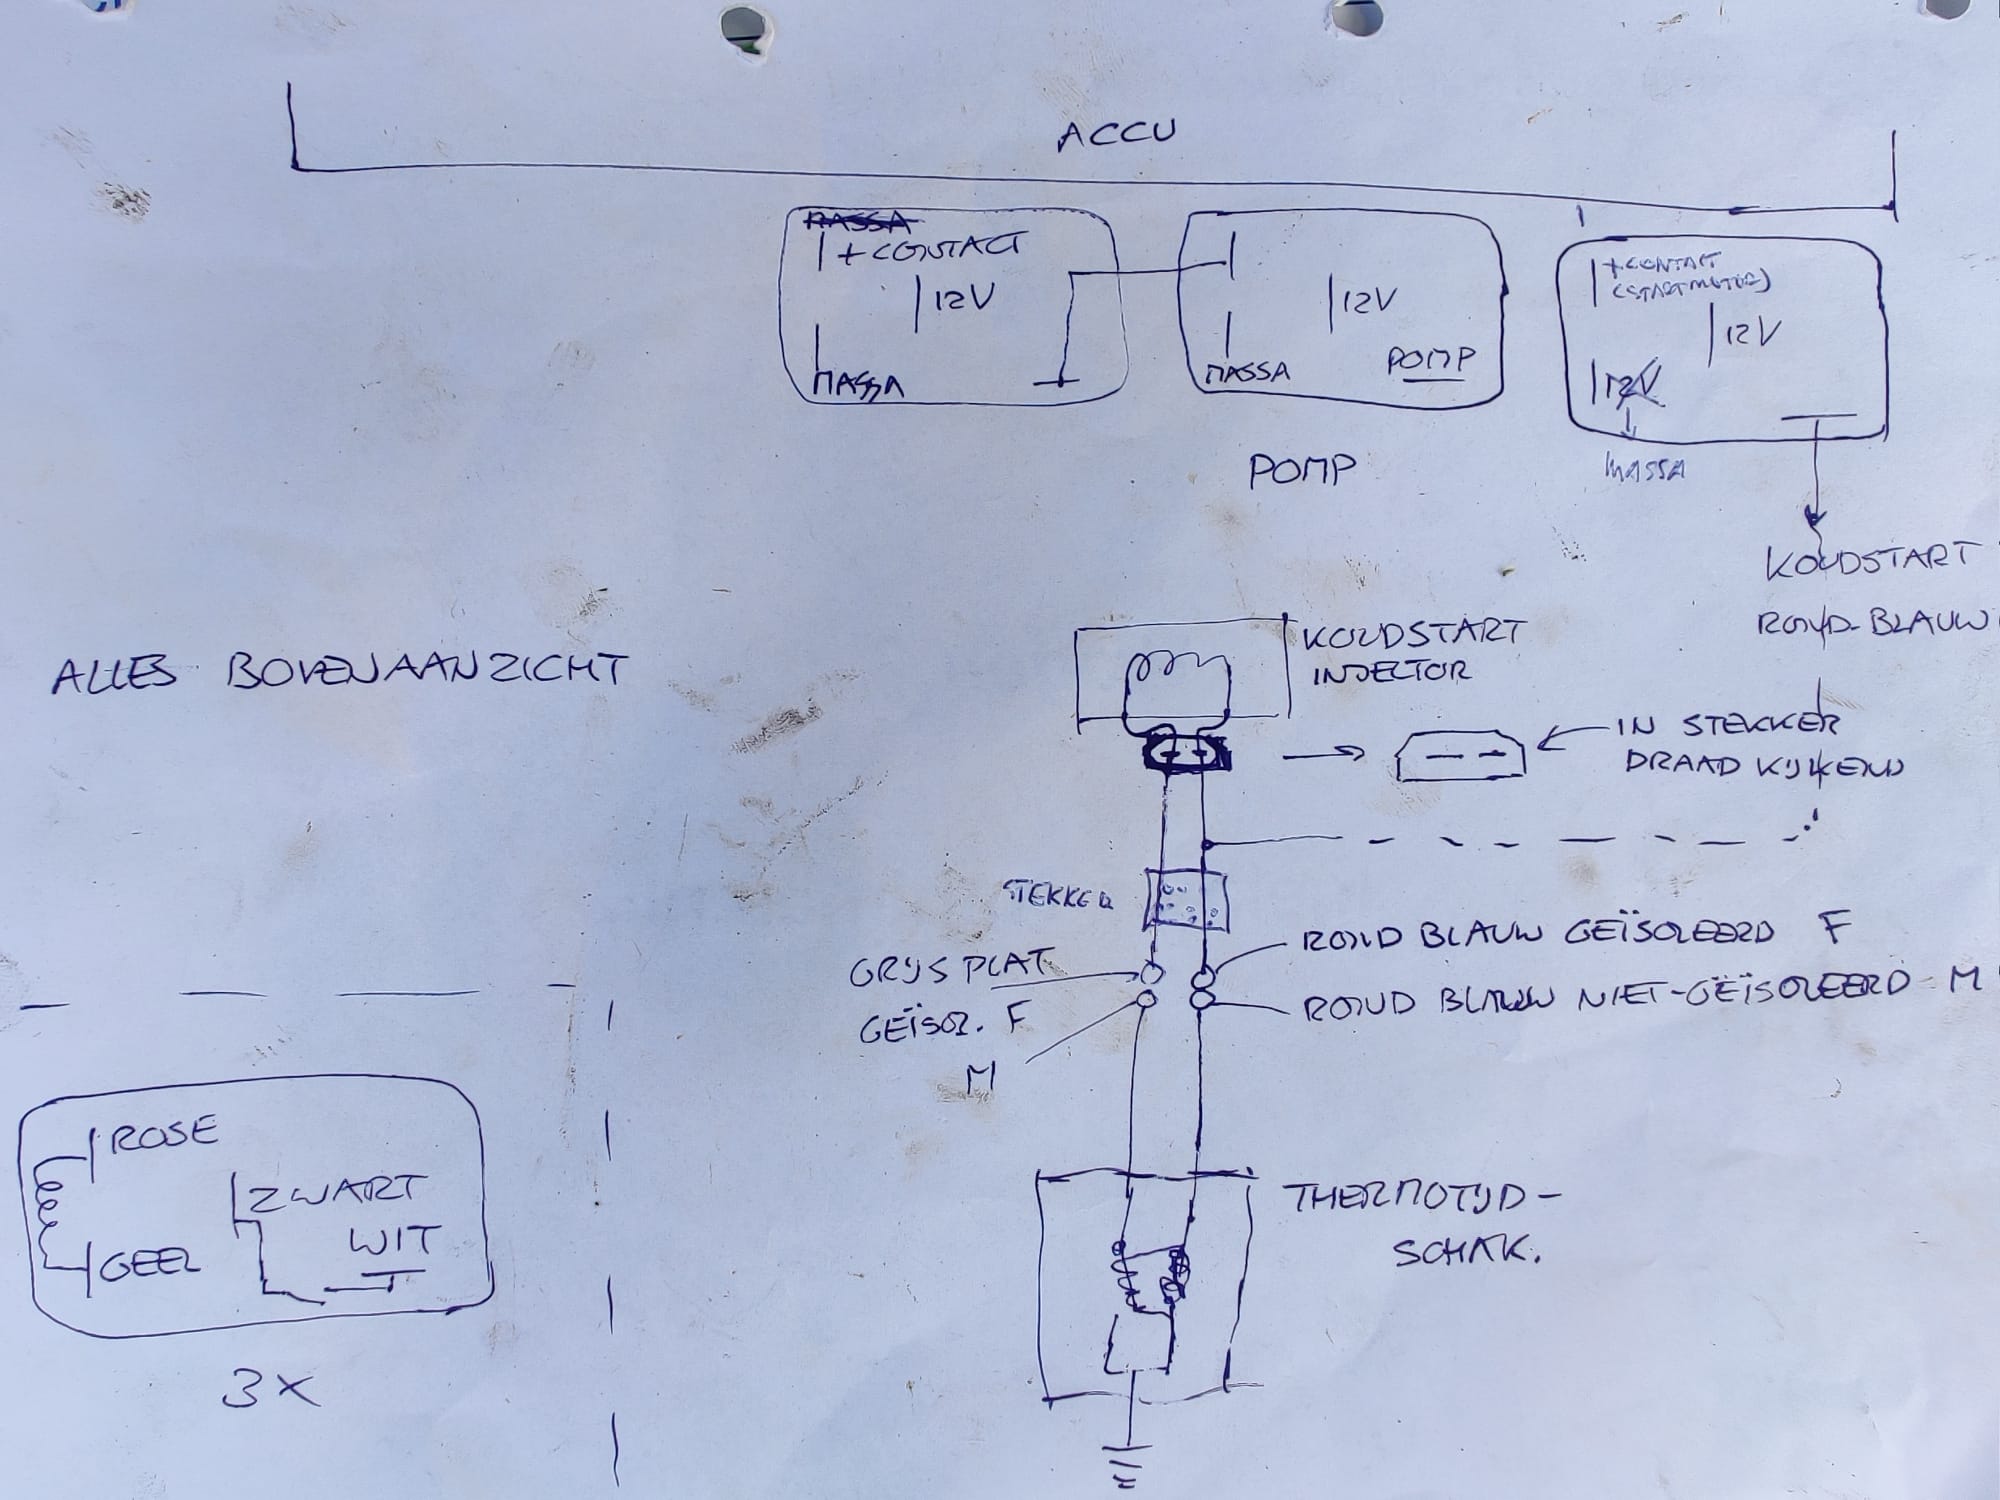 ACCU
MASSA
+ CONTACT
12V
MASSA
12V
MASSA
POMP
+ CONTAKT
(STARTMOTOR)
12V
12V
MASSA
POMP
KOUDSTART
ROND-BLAUW
ALLES BOVENAANZICHT
KOUDSTART
INJECTOR
IN STEKKER
DRAAD KIJKEND
STEKKER
ROND BLAUW GEÏSOLEERD F
GRIJS PLAT
GEÏSOL. F
ROND BLAUW NIET-GEÏSOLEERD M
M
ROSE
ZWART
WIT
GEEL
3X
THERMOTIJD-
SCHAK.